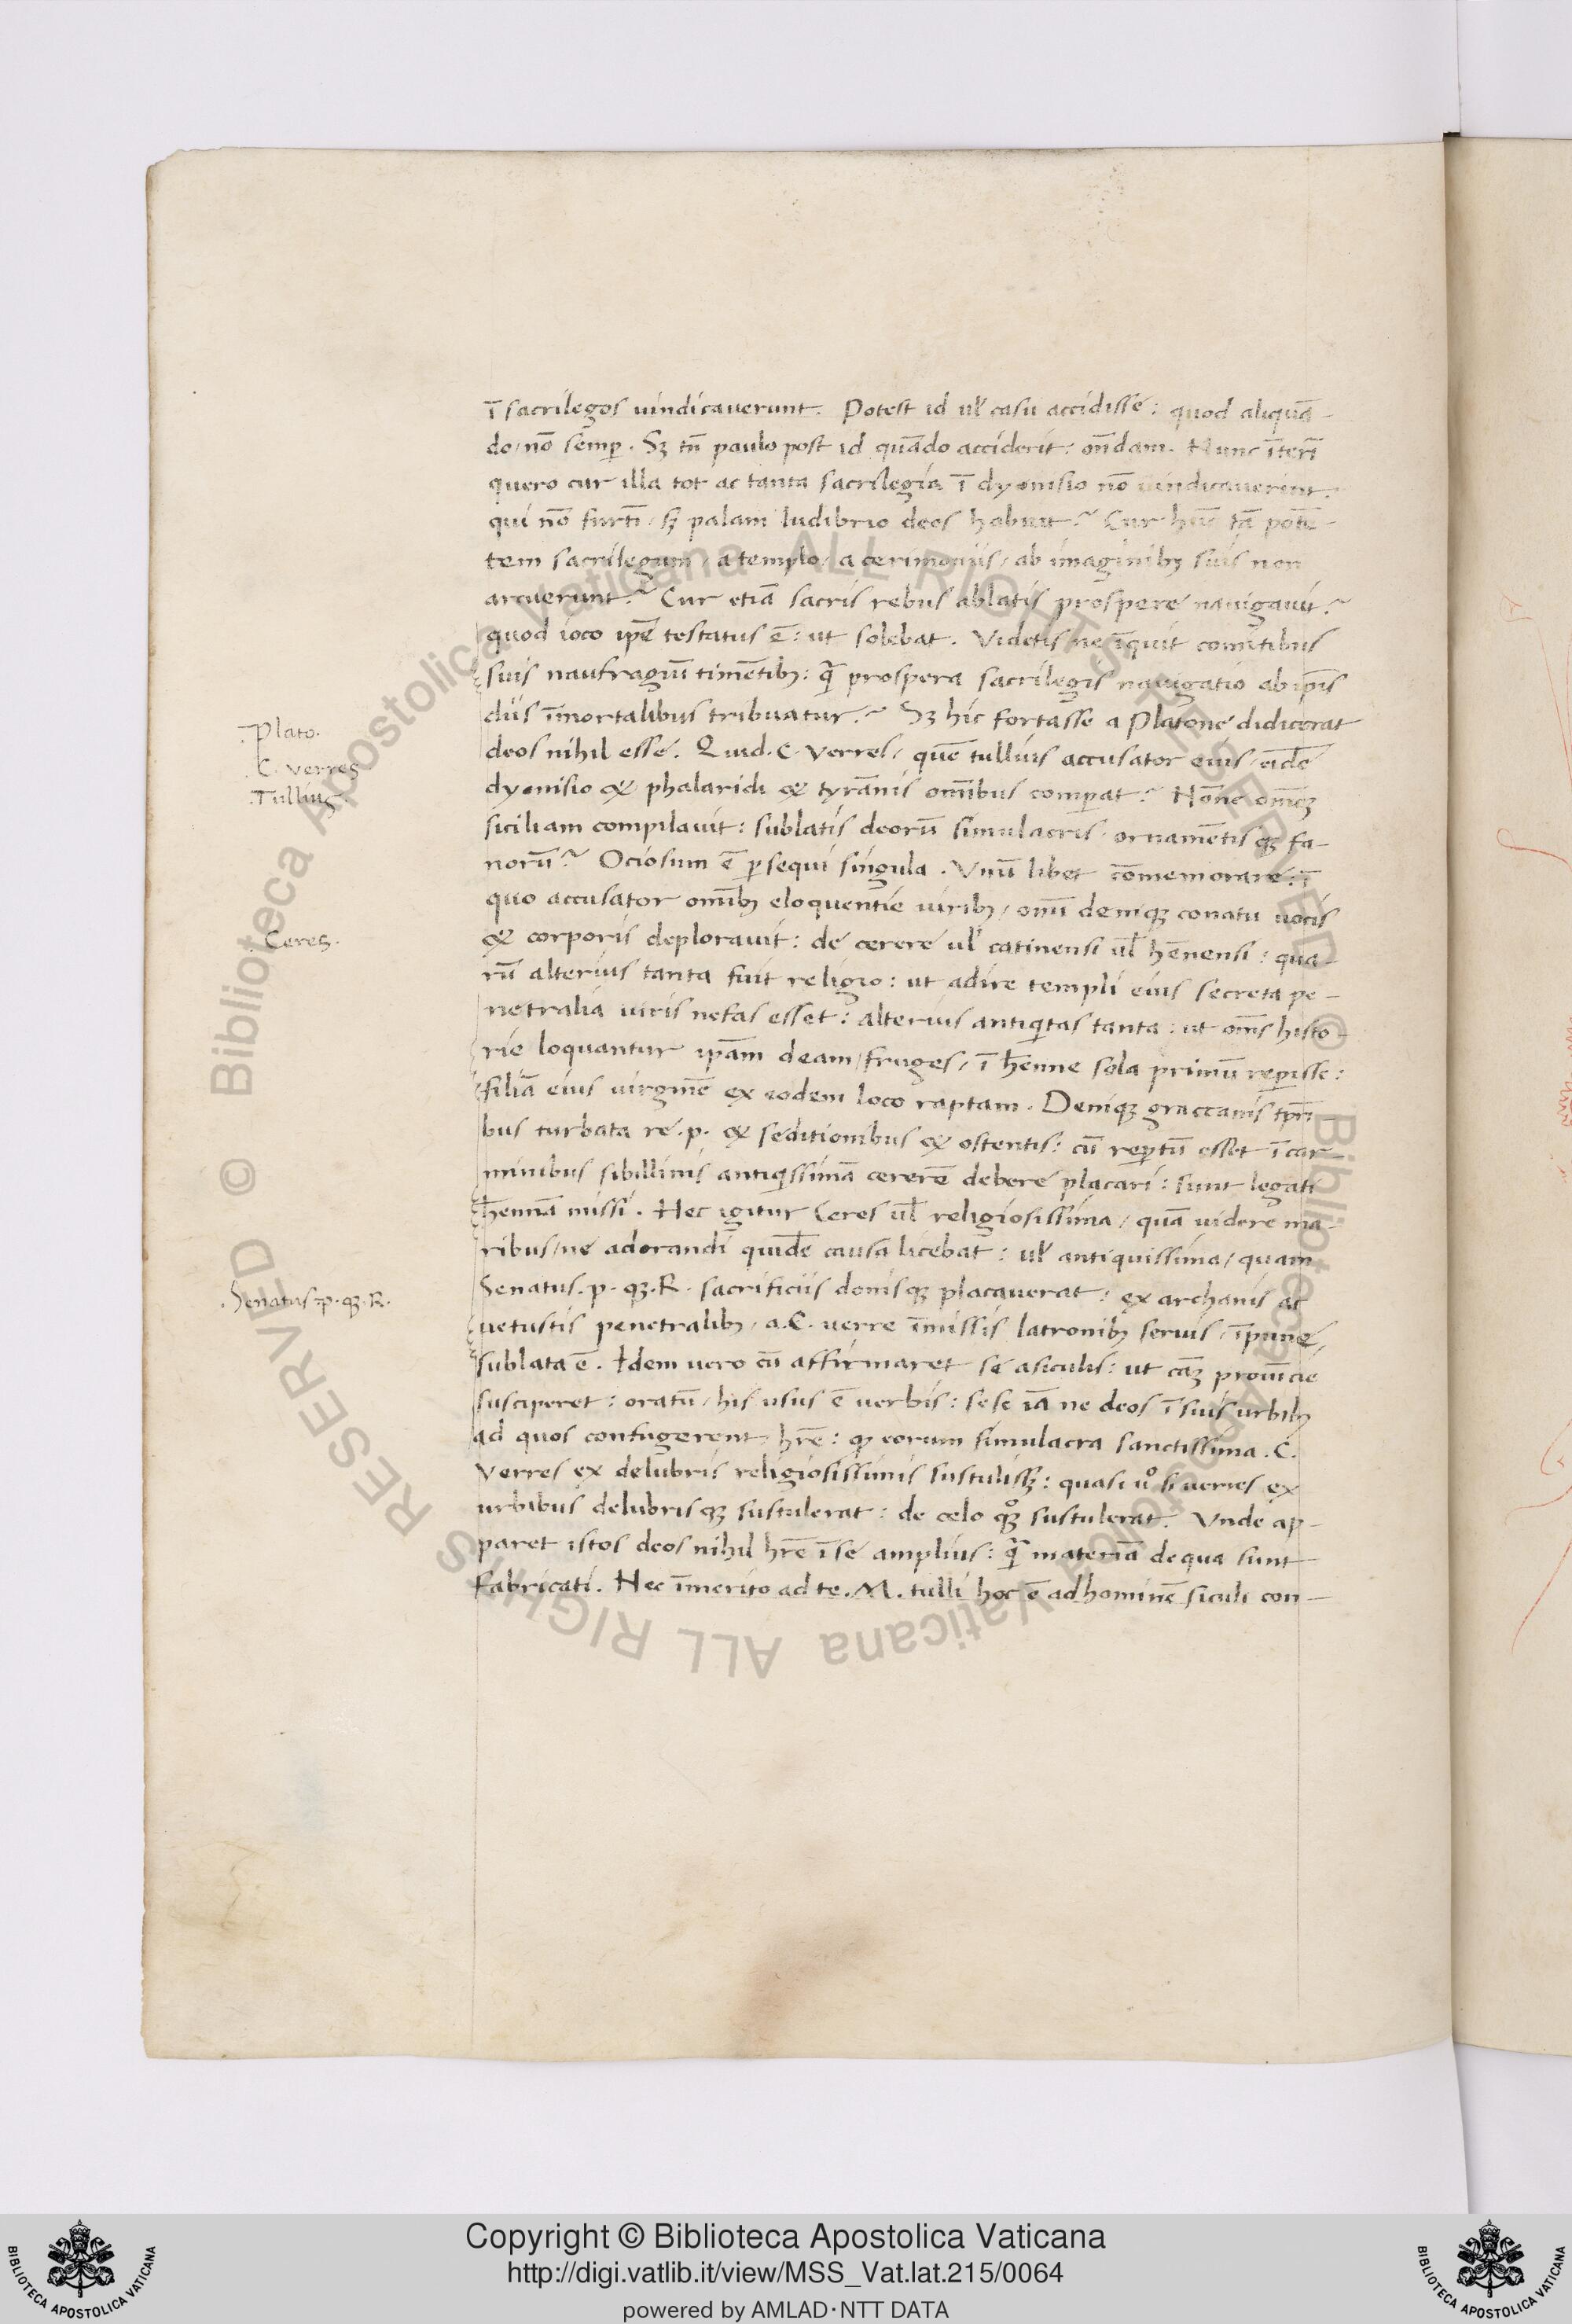 ī sacrilegos uindicauerunt. Potest id uł casu accidisse: quod aliquā-
do/ nō semꝑ. Sꝫ tn̄ paulo post id quādo acciderit: on̄dam. Nunc īterī
quero cur illa tot ac tanta sacrilegia ī dyonisio nō uindicauerint:
qui nō furtī/ sꝫ palam ludibrio deos habuit? Cur hūc tā potē-
tem sacrilegum/ a templo/ a cerimoniis/ ab imaginibꝫ suis non
arcuerunt? Cur etiā sacris rebus ablatis prospere nauigauit?
quod ioco ip̄e testatus ē: ut solebat. Videtis ne īquit comitibus
suis naufragiū timētibꝫ: q̄ prospera sacrilegis nauigatio ab ip̄is
diis īmortalibus tribuatur? Sꝫ hic fortasse a Platone didicerat
.Plato.
deos nihil esse. Quid .C. Verres/ quē tullius accusator eius/ eidē
.C. verres
dyonisio & phalaridi & tyrānis omībus comparat? Nōne omēꝫ
.Tullius.
siciliam compilauit: sublatis deorū simulacris/ ornamētis qꝫ fa-
norū? Ociosum ē ꝑsequi singula. Vnū libet cōmemorare: ī
quo accusator omībꝫ eloquentie uiribꝫ/ omī deniqꝫ conatu uocis
& corporis deplorauit: de cerere uł catinensi uł hēnensi: qua-
Ceres.
rū alterius tanta fuit religio: ut adire templi eius secreta pe-
netralia uiris nefas esset: alterius antiq̇tas tanta: ut om̄s histo-
rie loquantur ip̄am deam/ fruges/ ī henne sola primū reperisse:
filiā eius uirginē ex eodem loco raptam. Deniqꝫ graccanis tp̄ri
bus turbata re .p. & seditionibus & ostentis: cū repertū esset ī car
minibus sibillinis antiq̇ssimā cererē debere placari: sunt legati
hennā missi. Hec igitur Ceres uł religiosissima/ quā uidere ma-
ribus/ ne adorandi quidē causa licebat: uł antiquissima/ quam
Senatus .p. qꝫ .R. sacrificiis donisqꝫ placauerat: ex archanis ac
.Senatus .p. qꝫ .R.
uetustis penetralibꝫ/ a .C. uerre īmissis latronibꝫ seruis/ īpune/
sublata ē. Idem uero cū affirmaret se a siculis: ut cāꝫ prouīcie
susciperet: oratū/ his usus ē uerbis: sese iā ne deos ī suis urbibꝫ
ad quos confugerent/ hr̄e: ꝙ eorum simulacra sanctissima .C.
Verres ex delubris religiosissimis sustulissꝫ: quasi u̇o si uerres ex
urbibus delubrisqꝫ sustulerat: de celo qꝫo sustulerat. Vnde ap-
paret istos deos nihil hr̄e ī se amplius: q̄ materiā de qua sunt
fabricati. Nec īmerito ad te .M. tulli hoc ē ad hominē siculi con-
Copyright © Biblioteca Apostolica Vaticana
http://digi.vatlib.it/view/MSS_Vat.lat.215/0064
powered by AMLAD·NTT DATA
BIBLIOTECA APOSTOLICA VATICANA
BIBLIOTECA APOSTOLICA VATICANA
© Biblioteca Apostolica Vaticana ALL RIGHTS RESERVED © Biblioteca Apostolica Vaticana ALL RIGHTS RESERVED